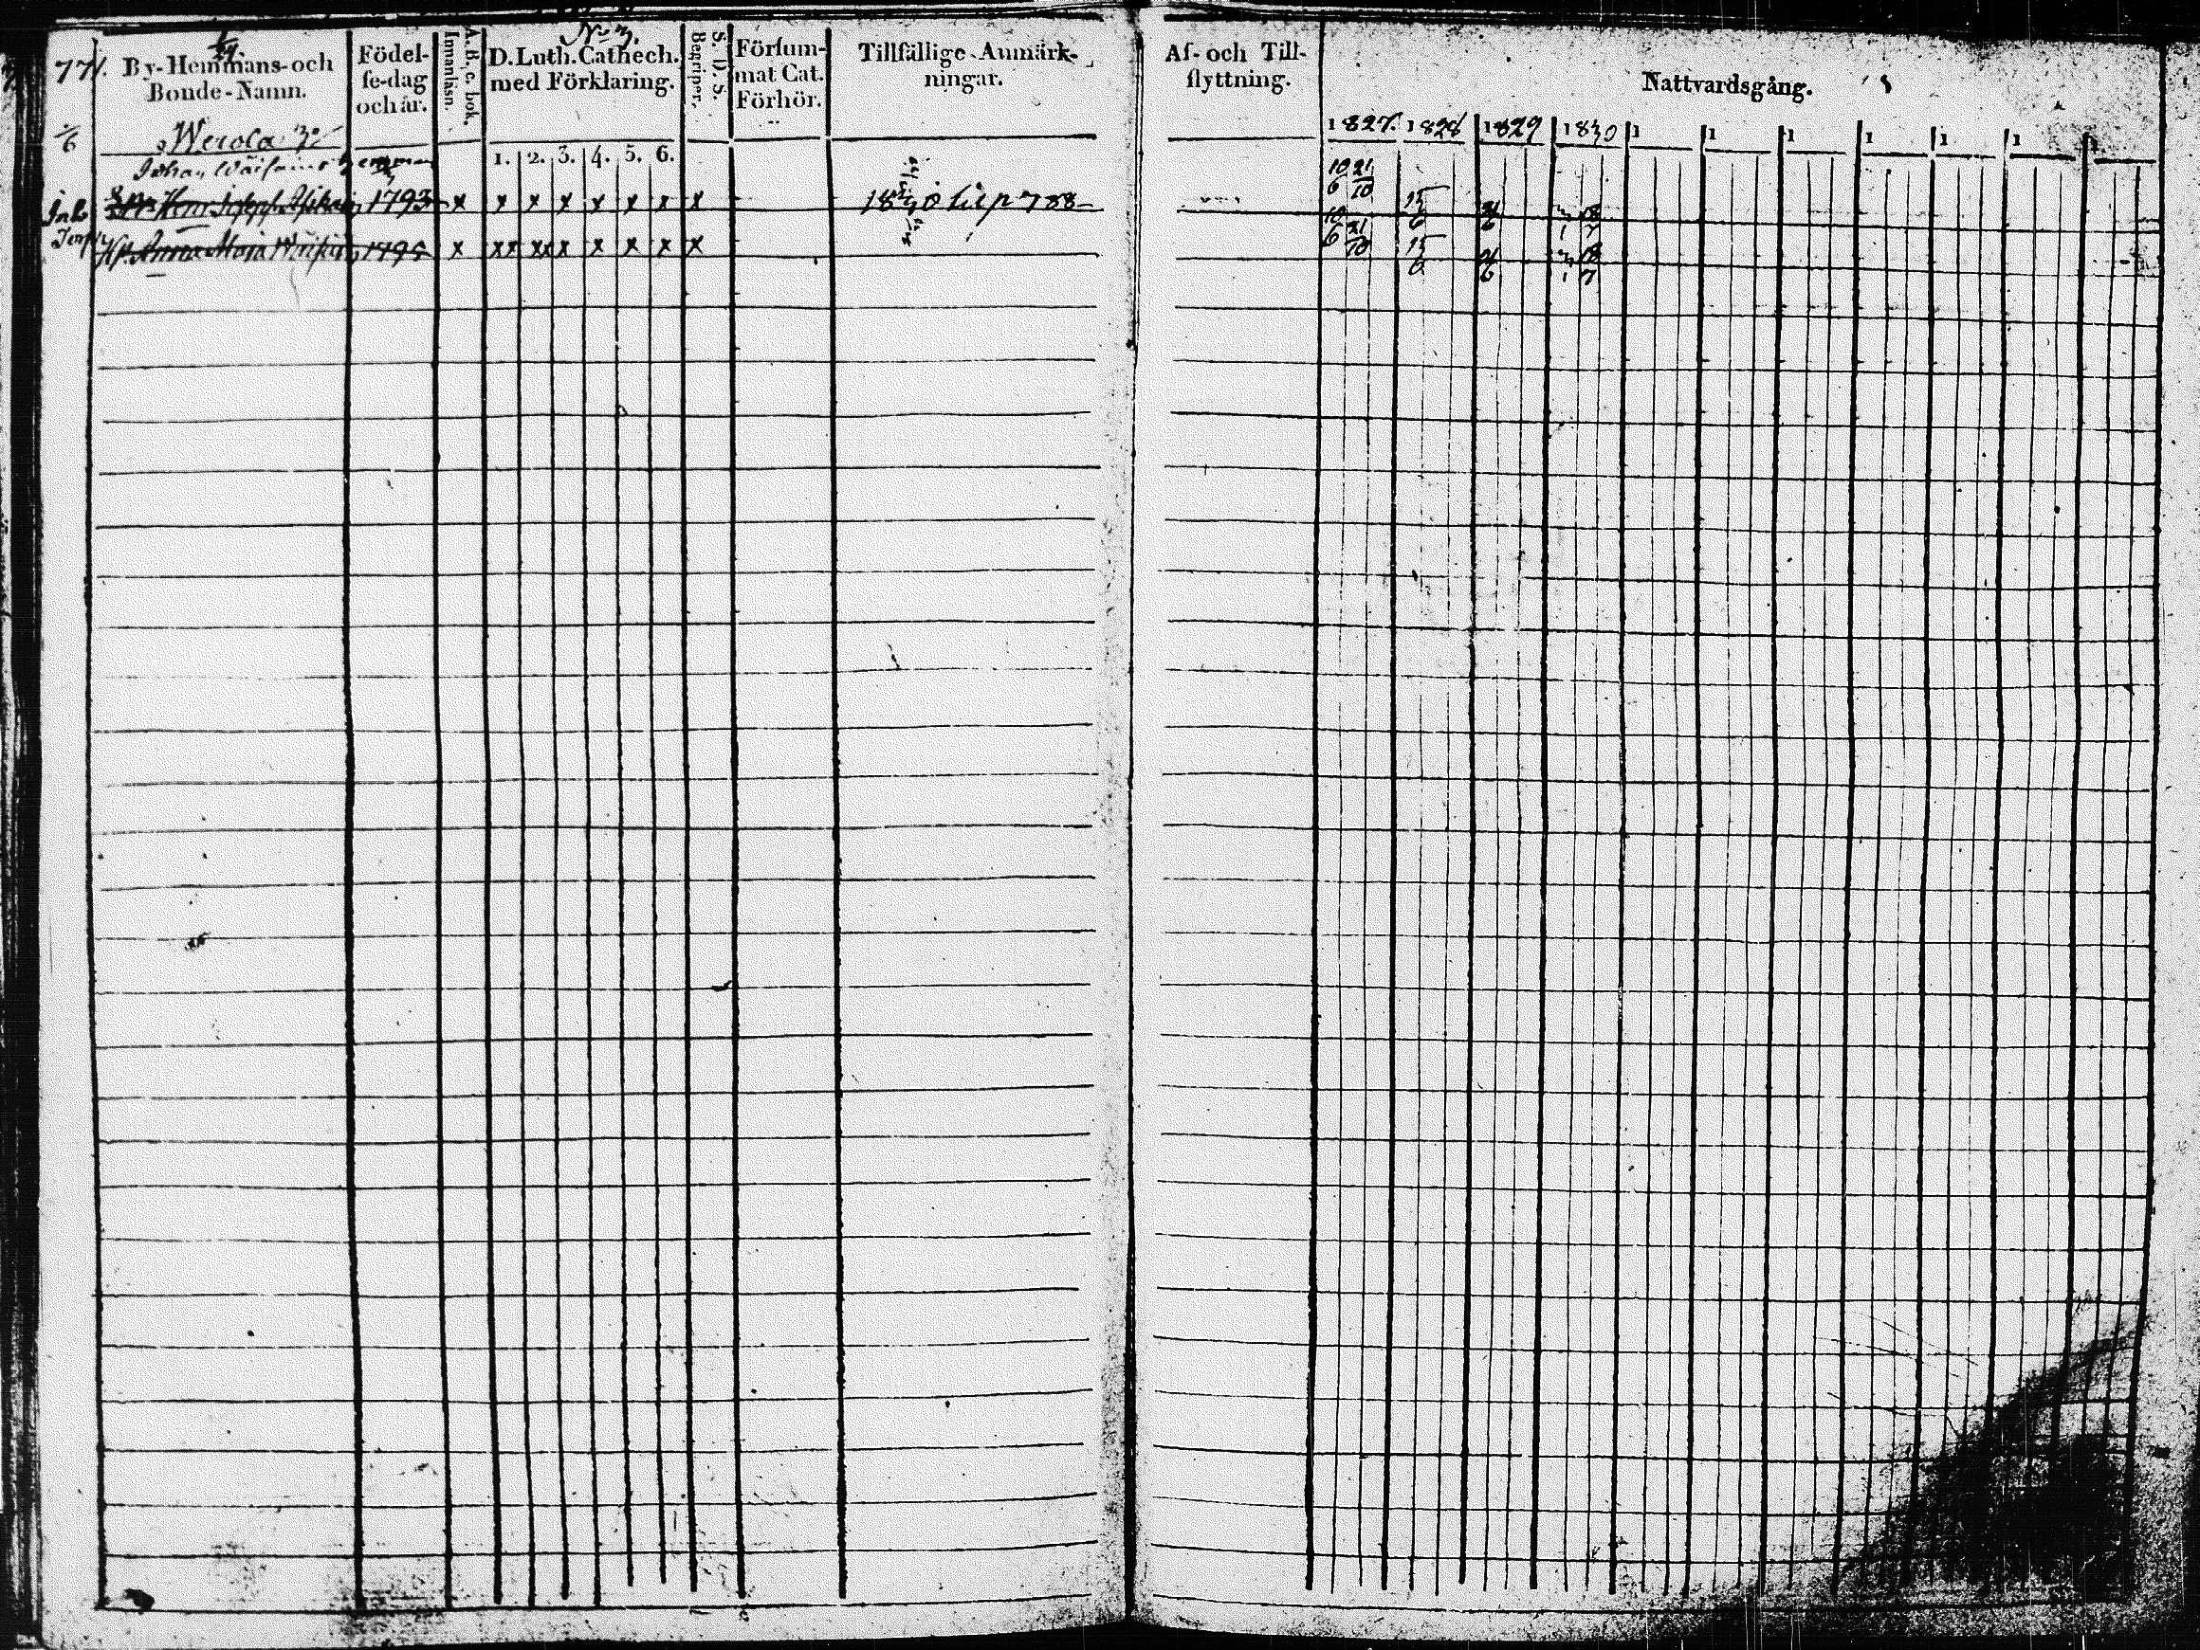 771.
By-Hemmans-och Bonde-Namn.
Födel- se-dag och år.
A. B. c. bok. Innanläsn.
No 3.
D. Luth. Cathech. med Förklaring.
1. 2. 3. 4. 5. 6.
S. D. S. Begriper.
Försum- mat Cat. Förhör.
Tillfällige Anmärk- ningar.
Af- och Till- flyttning.
Nattvardsgång.
1827. 1828 1829 1830 1 1 1 1 1 1 1
Werola
Johan
Inh 1793 x x x x x x x x 18 30 till p 788
10/6 21/10 15/6 18/7
Anna Maja 1795 x xx xx x x x x x
10/6 21/10 15/6 18/7